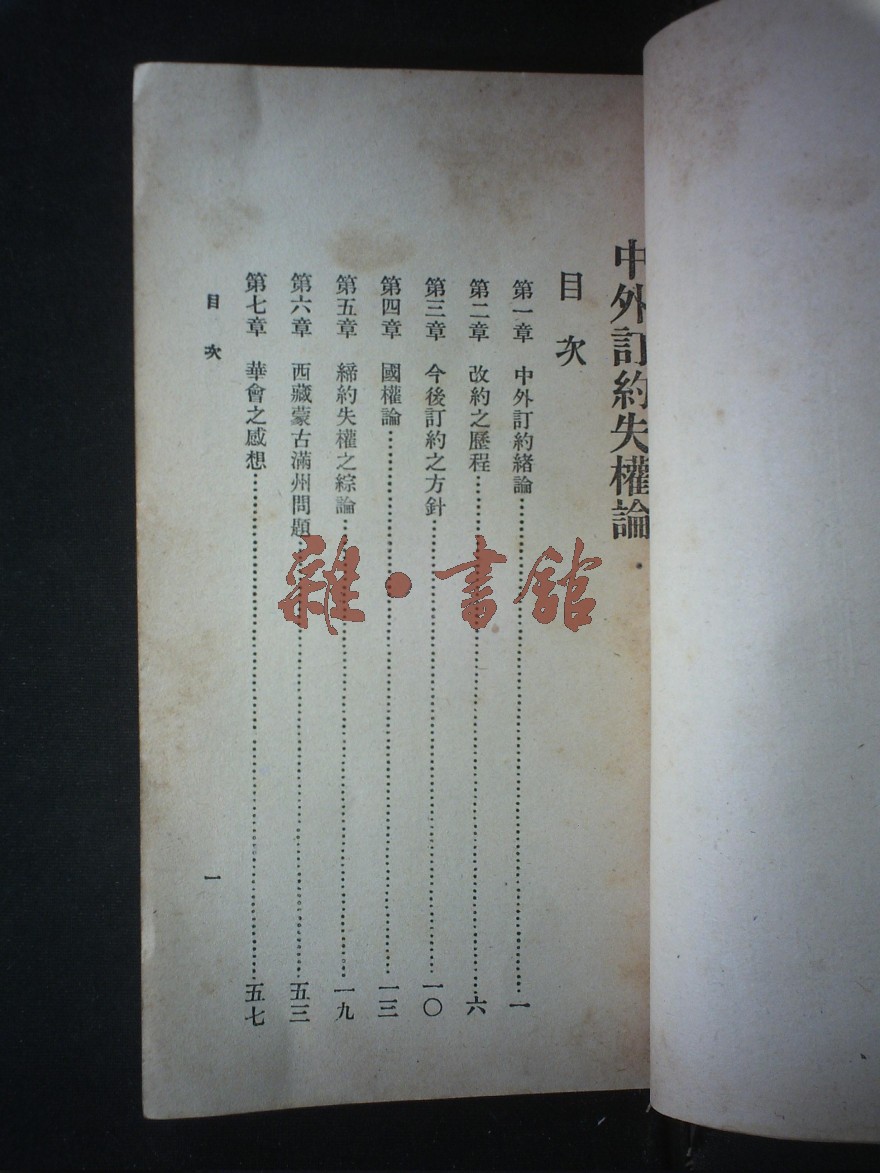 中外訂約失權論
目次
第一章 中外訂約緒論……一
第二章 改約之歷程……六
第三章 今後訂約之方針……一〇
第四章 國權論……一三
第五章 締約失權之綜論……一九
第六章 西藏蒙古滿州問題……五三
第七章 華會之感想……五七
目次
一
雜·書館